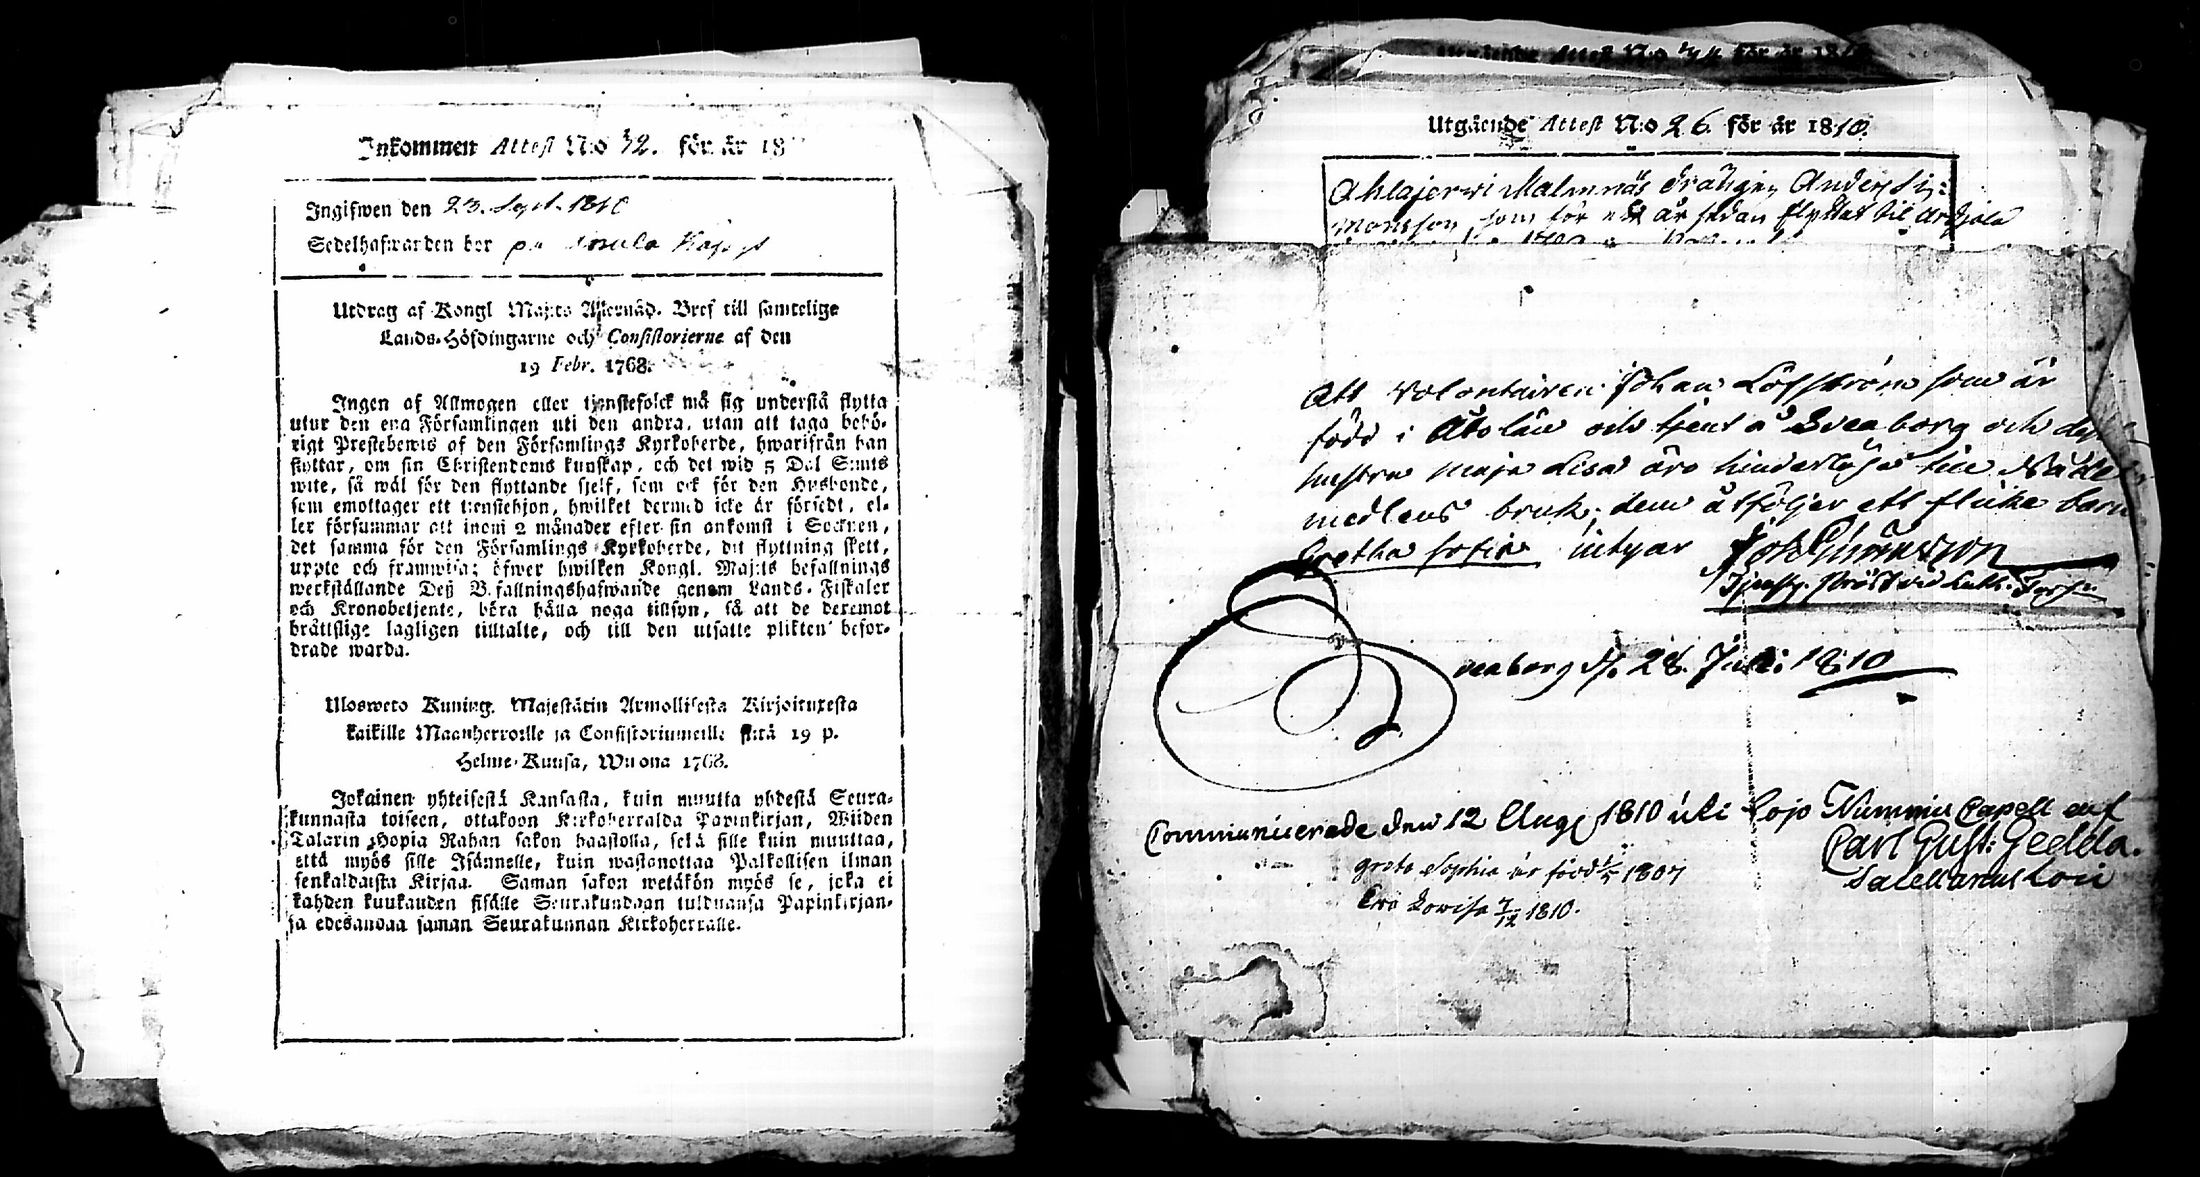 Inkommen Attest N:o 42. för år 18
Ingifwen den 23. Sept. 1810
Sedelhafwarden bor på
Utdrag af Kongl Maj:ts Allernåd. Bref till samtelige
Lands-Höfdingarne och Consistorierne af den
19 Febr. 1768.
Ingen af Allmogen eller tjenstefolck må sig understå flytta
utur den ena Församlingen uti den andra, utan att taga behö-
rigt Prestebewis af den Församlings Kyrkoherde, hwarifrån han
flyttar, om sin Christendoms kunskap, och det wid 5 Dal Smts
wite, så wäl för den flyttande sjelf, som ock för den Husbonde,
som emottager ett tienstehjon, hwilket dermed icke är försedt, el-
ler försummar att inom 2 månader efter sin ankomst i Socknen,
det samma för den Församlings Kyrkoherde, dit flyttning skett,
uppte och framwisa; öfwer hwilken Kongl. Maj:ts befallnings
werkställande Deß Befallningshafwande genom Lands-Fiskaler
och Kronobetjente, böra hälla noga tillsyn, så att de deremot
bråttslige lagligen tilltalte, och till den utsatte plikten befor-
drade warda.
Ulosweto Kuning. Majestätin Armollisesta Kirjoituxesta
kaikille Maanherroille ja Consistoriumeille siitä 19 p.
Helme-Kuusa, Wuona 1768.
Jokainen yhteisestä Kansasta, kuin muutta yhdestä Seura-
kunnasta toiseen, ottakoon Kirkoherralda Papinkirjan, Wiiden
Talarin Hopia Rahan sakon haastolla, sekä sille kuin muuttaa,
että myös sille Isännelle, kuin wastanottaa Palkollisen ilman
senkaldaista Kirjaa. Saman sakon wetäkön myös se, joka ei
kahden kuukauden sisälle Seurakundaan tulduansa Papinkirjan-
sa edesandaa saman Seurakunnan Kirkoherralle.
Utgående Attest N:o för år 18
Utgående Attest N:o 26. för år 1810.
Ahlajerwi Malmnäs drängen Anders Si-
monsson, som för ett år sedan flyttat til
Att Volontairen Johan Löfström som är
född i Åbo län och tjent å Sveaborg och dess
hustru Maja Lisa äro hinderlöse till Nåde
medlens bruk; dem åtföljer ett flicke barn
Gretha Sofia intygar
Sveaborg d. 28. Juli 1810
Communicerade den 12 Aug 1810 uti Lojo Nummis Capell auf
Carl Gust: Gedda.
Sacellanus Loci
Greta Sophia är född 1807
Eva Lovisa 7/12 1810.